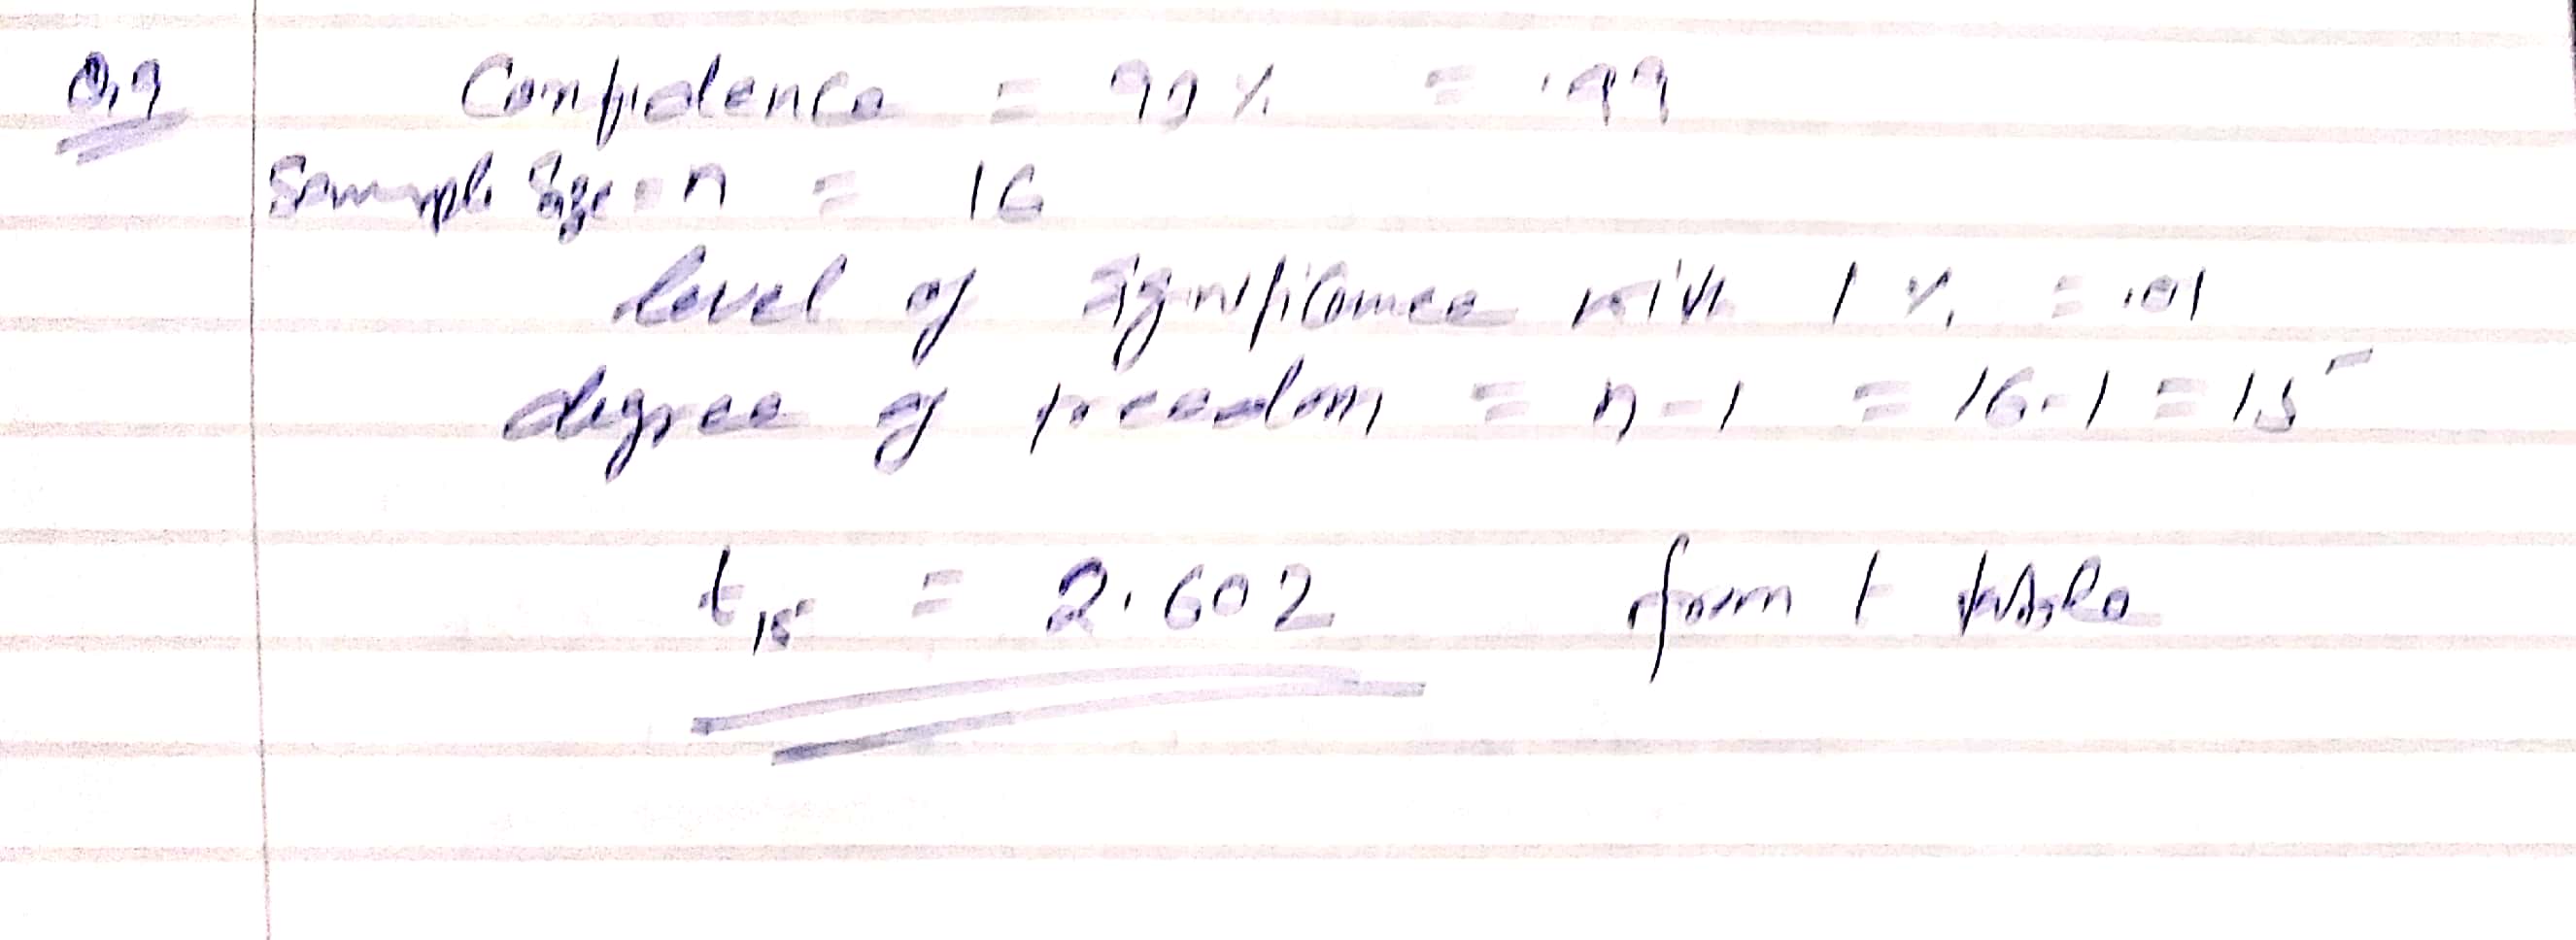 Q.9 Confidence = 99% = .99
Sample Size = n = 16
level of significance with 1% = .01
degree of freedom = n-1 = 16-1 = 15
t15 = 2.602 from t table